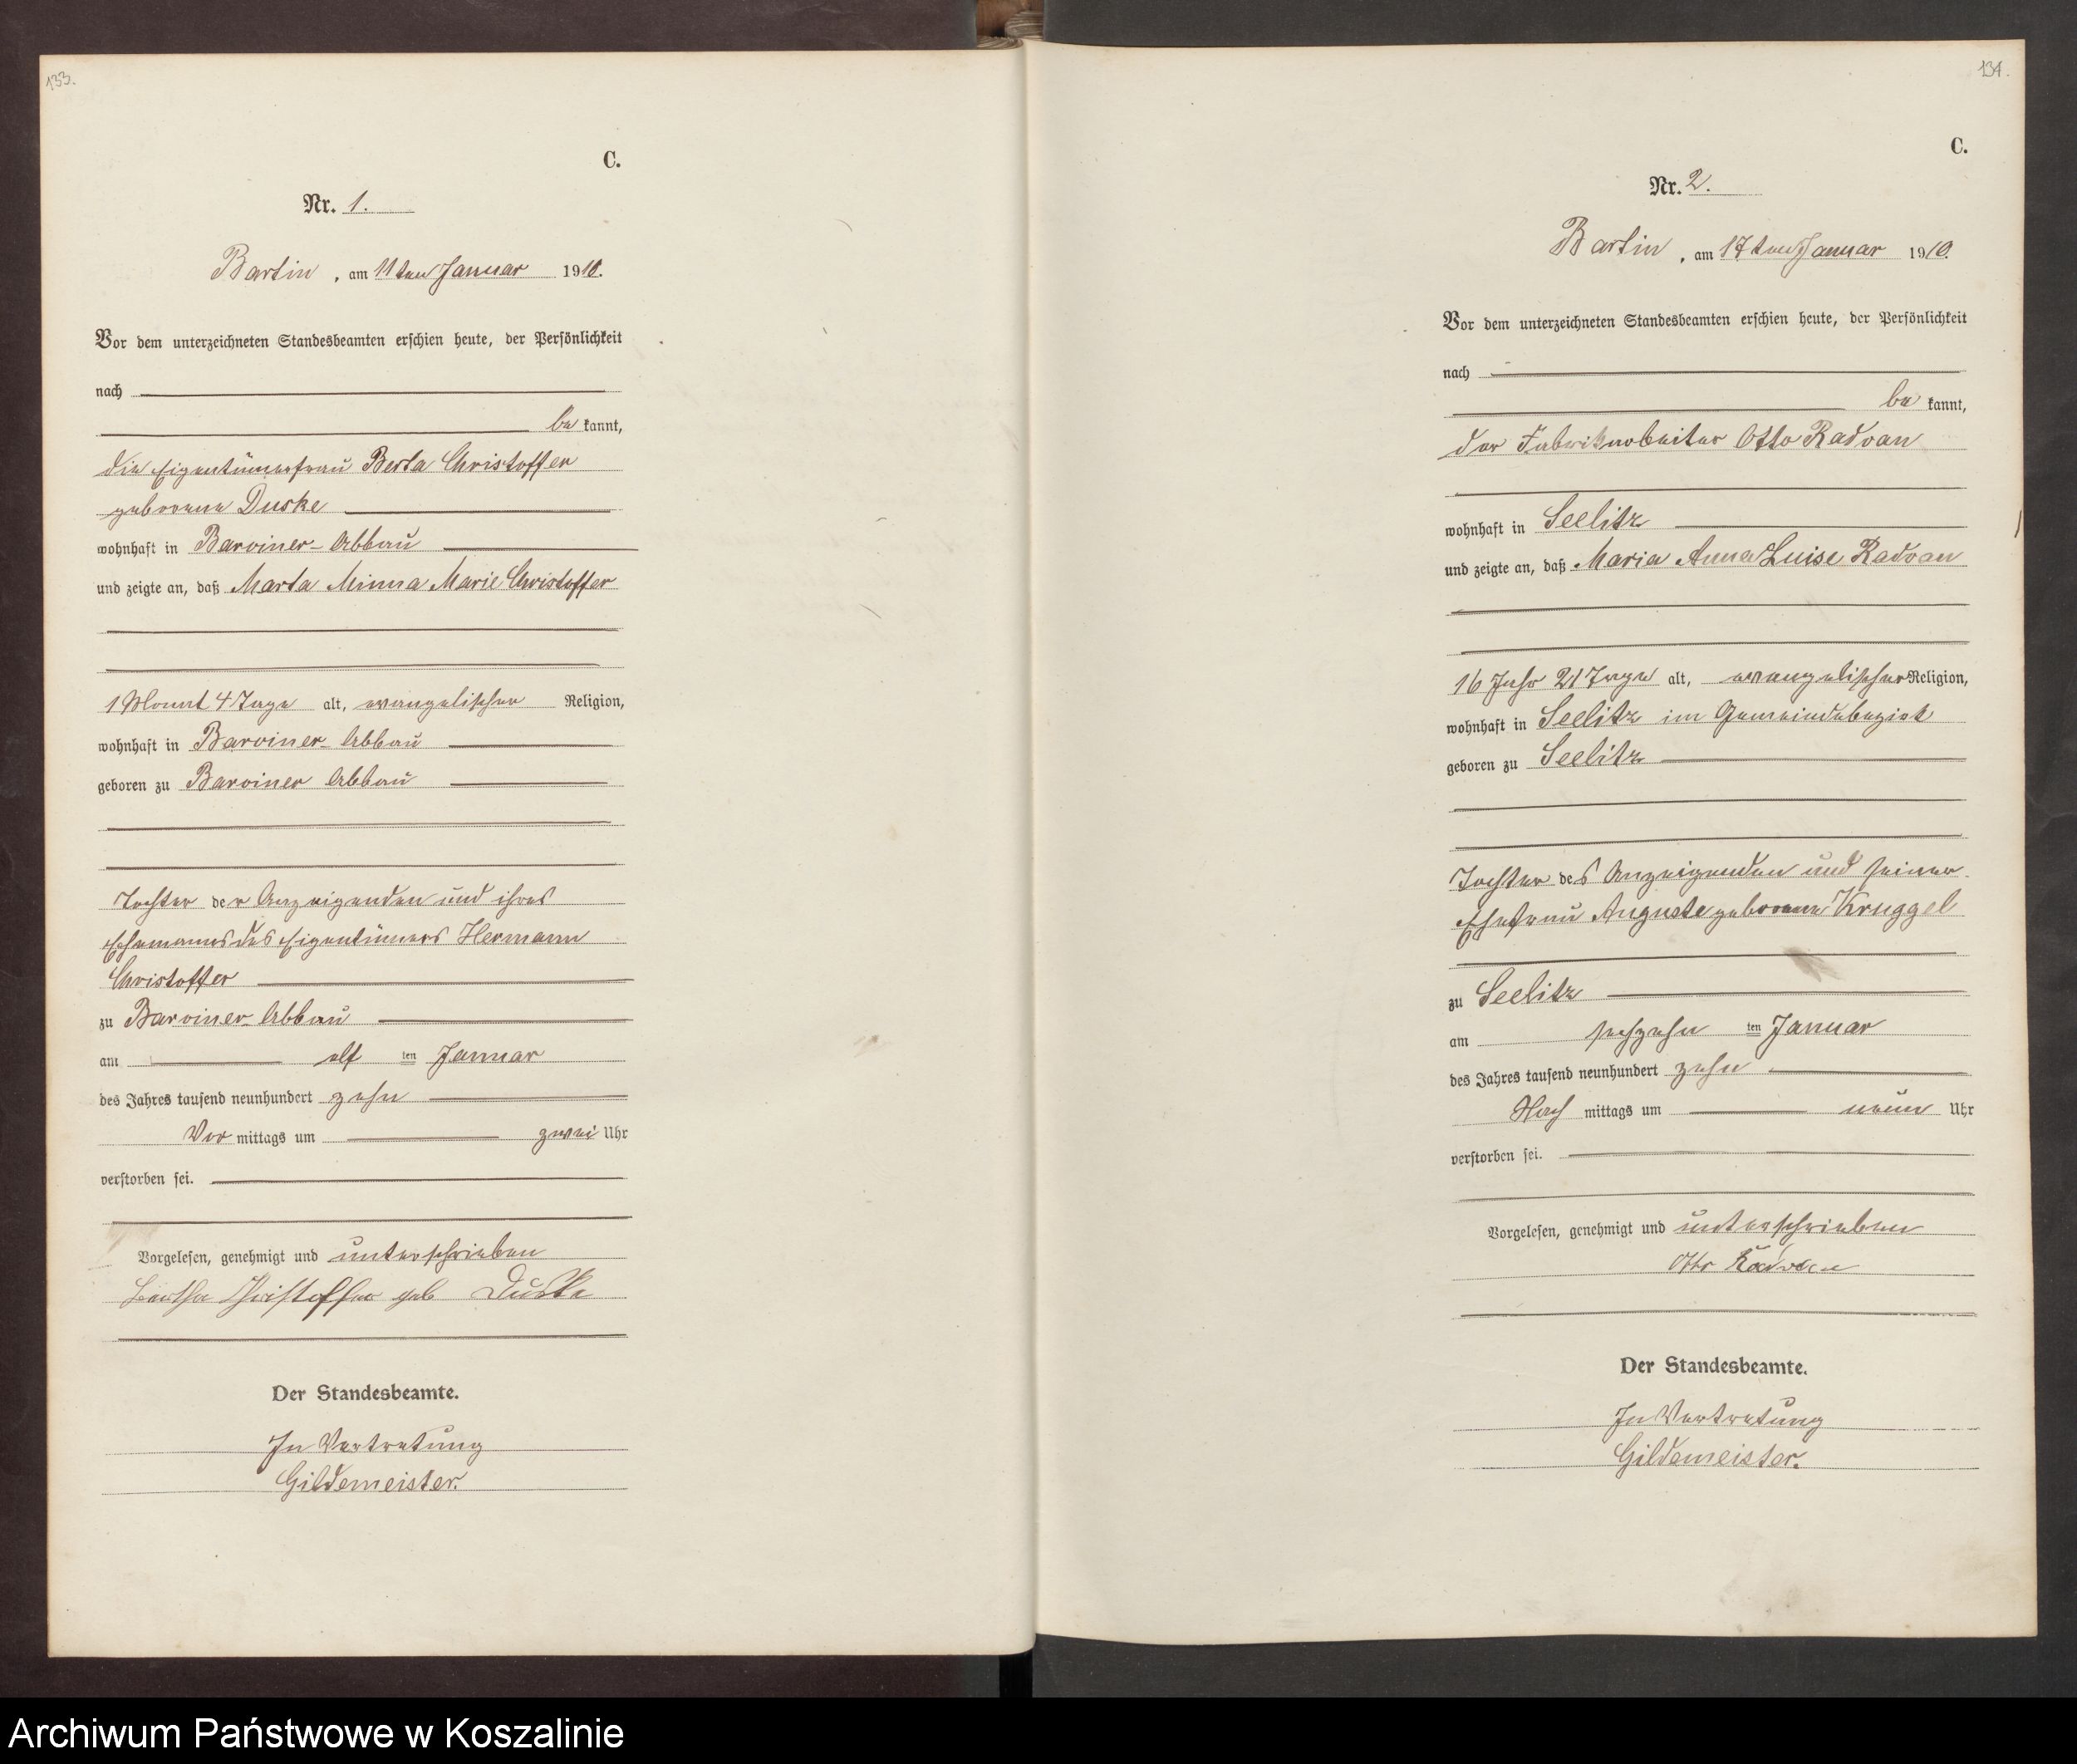 133.
C.
Nr. 1.
Bartin, am 11ten Januar 1910.
Vor dem unterzeichneten Standesbeamten erschien heute, der Persönlichkeit
nach
be kannt,
die Eigentümerfrau Berta Christoffer
geborene Duske
wohnhaft in Barviner-Abbau
und zeigte an, daß Marta Minna Marie Christoffer
1 Monat 4 Tage alt, evangelischer Religion,
wohnhaft in Barviner-Abbau
geboren zu Barviner Abbau
Tochter der Anzeigenden und ihres
Ehemannes des Eigentümers Hermann
Christoffer
zu Barviner-Abbau
am elf ten Januar
des Jahres tausend neunhundert zehn
Vor mittags um zwei Uhr
verstorben sei.
Vorgelesen, genehmigt und unterschrieben
Bertha Christoffer geb Duske
Der Standesbeamte.
In Vertretung
Gildemeister.
134.
C.
Nr. 2.
Bartin, am 17ten Januar 1910.
Vor dem unterzeichneten Standesbeamten erschien heute, der Persönlichkeit
nach
be kannt,
der Fabrikarbeiter Otto Radvan
wohnhaft in Seelitz
und zeigte an, daß Maria Anna Luise Radvan
16 Jahr 21 Tage alt, evangelischer Religion,
wohnhaft in Seelitz im Gemeindebezirk
geboren zu Seelitz
Tochter des Anzeigenden und seiner
Ehefrau Auguste geborene Kruggel
zu Seelitz
am sechzehn ten Januar
des Jahres tausend neunhundert zehn
Nach mittags um neun Uhr
verstorben sei.
Vorgelesen, genehmigt und unterschrieben
Otto Radvan
Der Standesbeamte.
In Vertretung
Gildemeister.
Archiwum Państwowe w Koszalinie